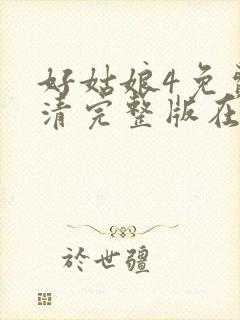 好姑娘4免
清完整版在
於世疆